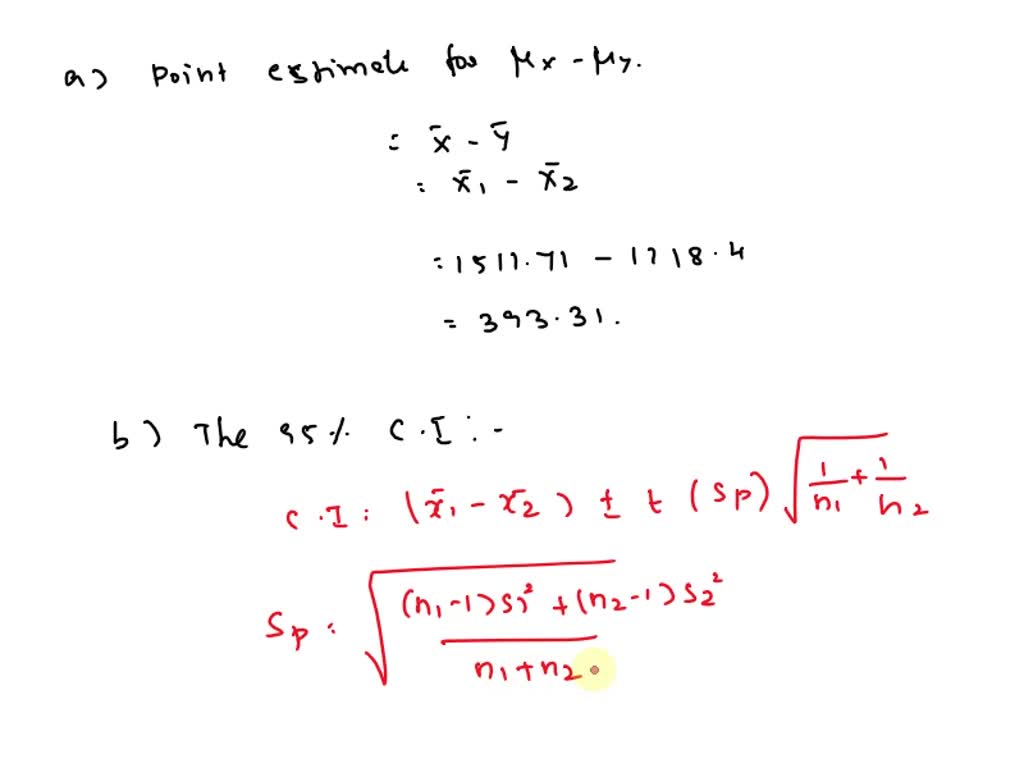 a) Point estimate for μx - μy.
= x̄ - ȳ
= x̄1 - x̄2
= 1511.71 - 1118.4
= 393.31.
b) The 95% C.I :-
C.I : (x̄1 - x̄2) ± t (Sp) √(1/n1 + 1/n2)
Sp = √((n1-1)S1² + (n2-1)S2² / n1+n2